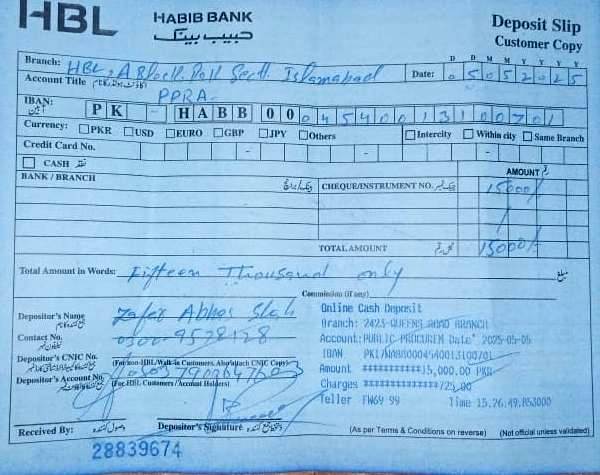 HBL HABIB BANK
حبيب بينک
Deposit Slip
Customer Copy
Branch: HBL, A Block Pak Sectt. Islamabad
Date: D D M M Y Y Y Y
0 5 0 5 2 0 2 5
Account Title
PPRA
IBAN: PK - HABB 00
Currency: PKR USD EURO GBP JPY Others Intercity Within city Same Branch
Credit Card No.
CASH نقد
AMOUNT رقم
BANK / BRANCH CHEQUE/INSTRUMENT NO. 15000/-
TOTAL AMOUNT 15000/-
Total Amount in Words: Fifteen Thousand only
Commission (if any)
Depositor's Name Zafar Abbas Shah
Contact No.
Depositor's CNIC No. (For non-HBL/Walk-in Customers Also attach CNIC Copy)
Depositor's Account No. (For HBL Customers / Account Holders)
Online Cash Deposit
Branch: 2423-QUEENS ROAD BRANCH
Account:PUBLIC PROCUREM Date: 2025-05-05
IBAN
Amount ************15,000.00 PKR
Charges
Teller FW69 99 Time 15.26.49.853000
Received By: وصول کننده Depositor's Signature
(As per Terms & Conditions on reverse) (Not official unless validated)
28839674